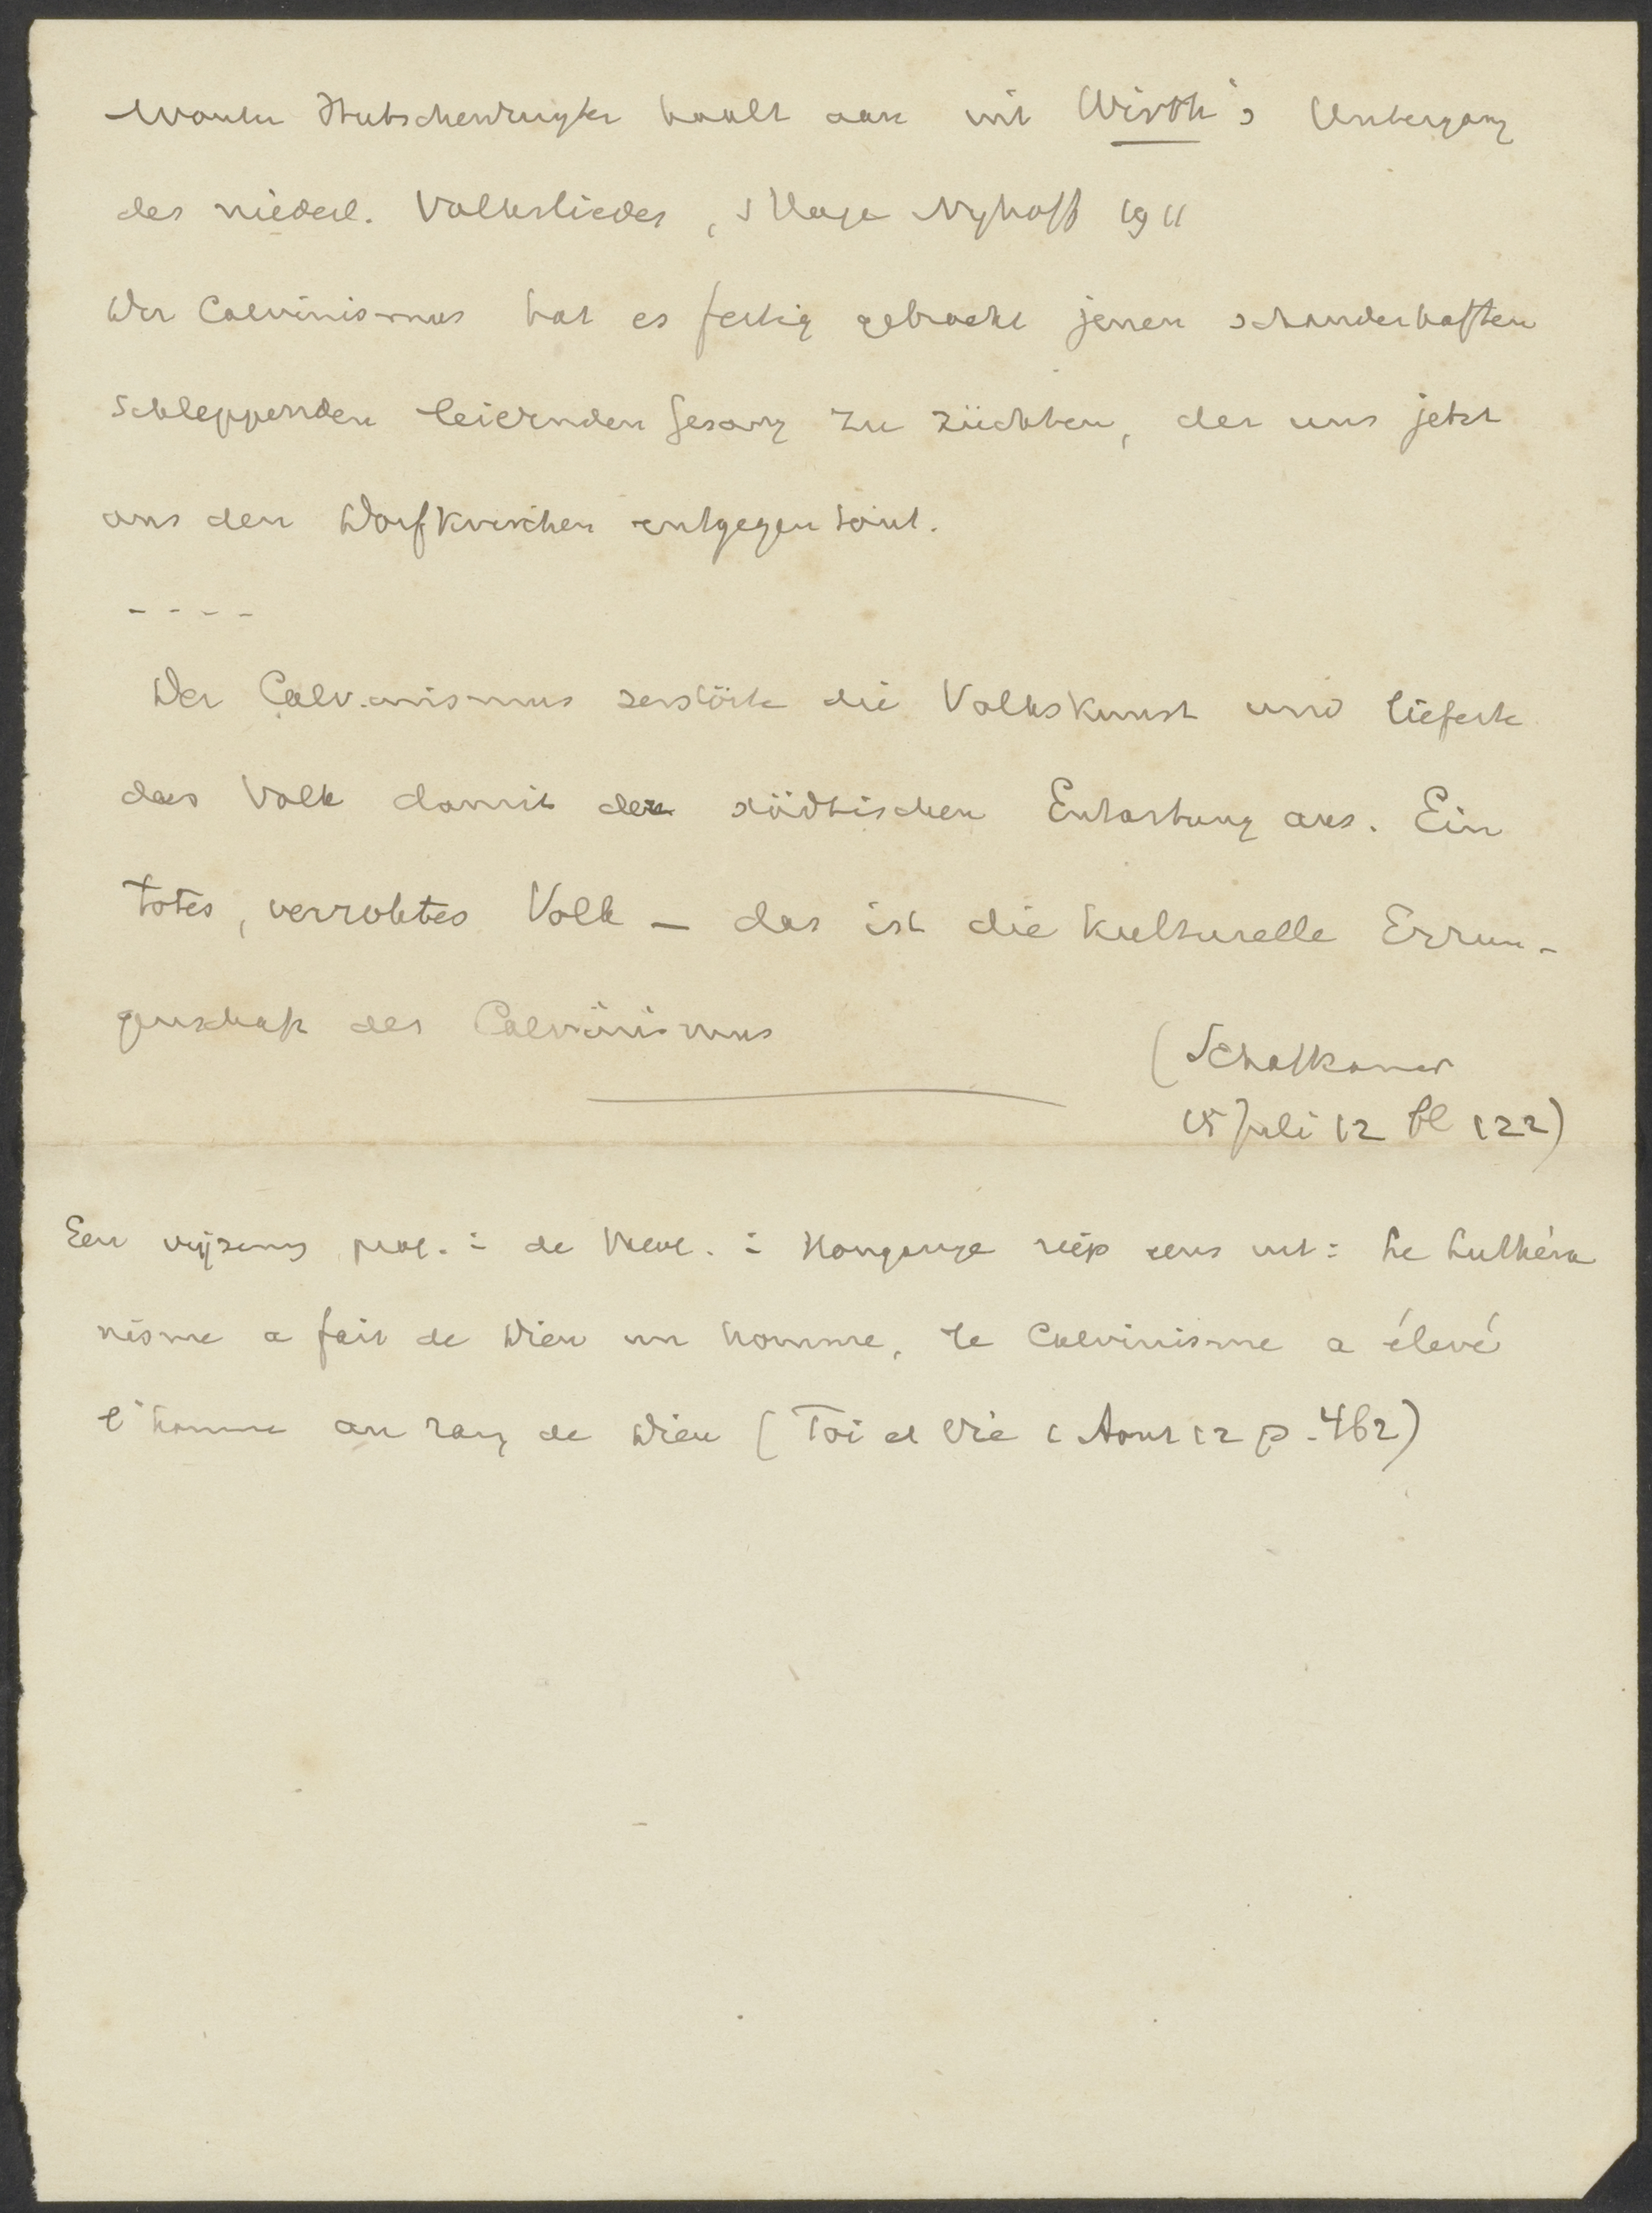 Wouter Hutschenruyter haalt aan uit Wirth's Untergang
des niederl. Volksliedes, s Hage Nyhoff 1911
Der Calvinismus hat es fertig gebracht jenen schauderhaften
schleppenden leiernden Gesang zu züchten, der uns jetzt
aus den Dorfkirchen entgegen tönt.
- - - -
Der Calvinismus zerstörte die Volkskunst und lieferte
das Volk damit der städtischen Entartung aus. Ein
totes, verrohtes Volk — das ist die kulturelle Errun-
genschaft des Calvinismus
(Schalkamer
15 Juli 12 bl 122)
Een prof. : de : Hongarije riep eens uit: Le Luthéra
nisme a fait de Dieu un homme, le Calvinisme a élevé
l'homme au rang de Dieu (Foi et Vie 1 Aout 12 p. 462)